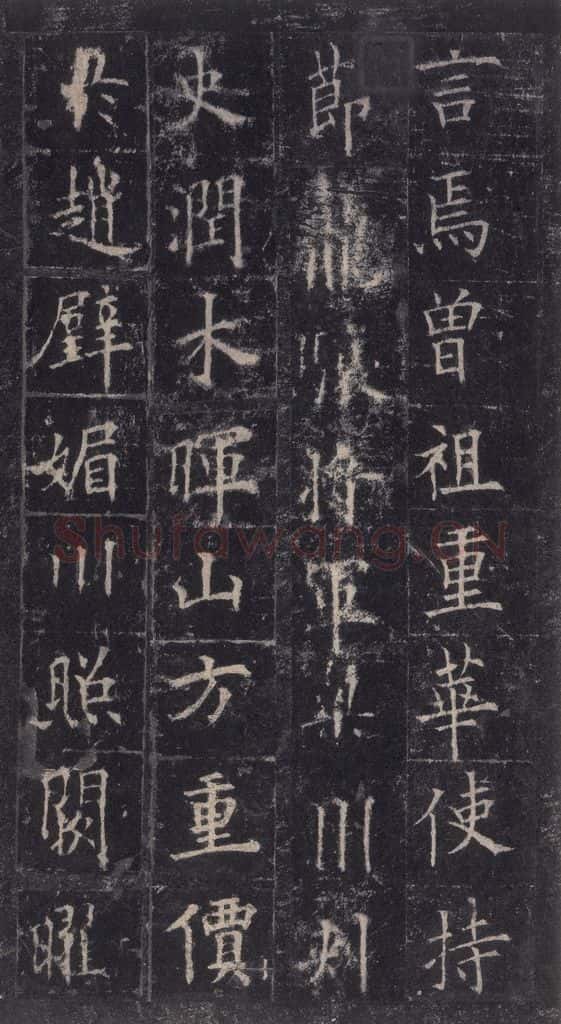 言焉曾祖重華使持
節龍驤將軍梁州刺
史潤木暉山方重價
於趙璧媚川照闕曜
Shufawang.CN